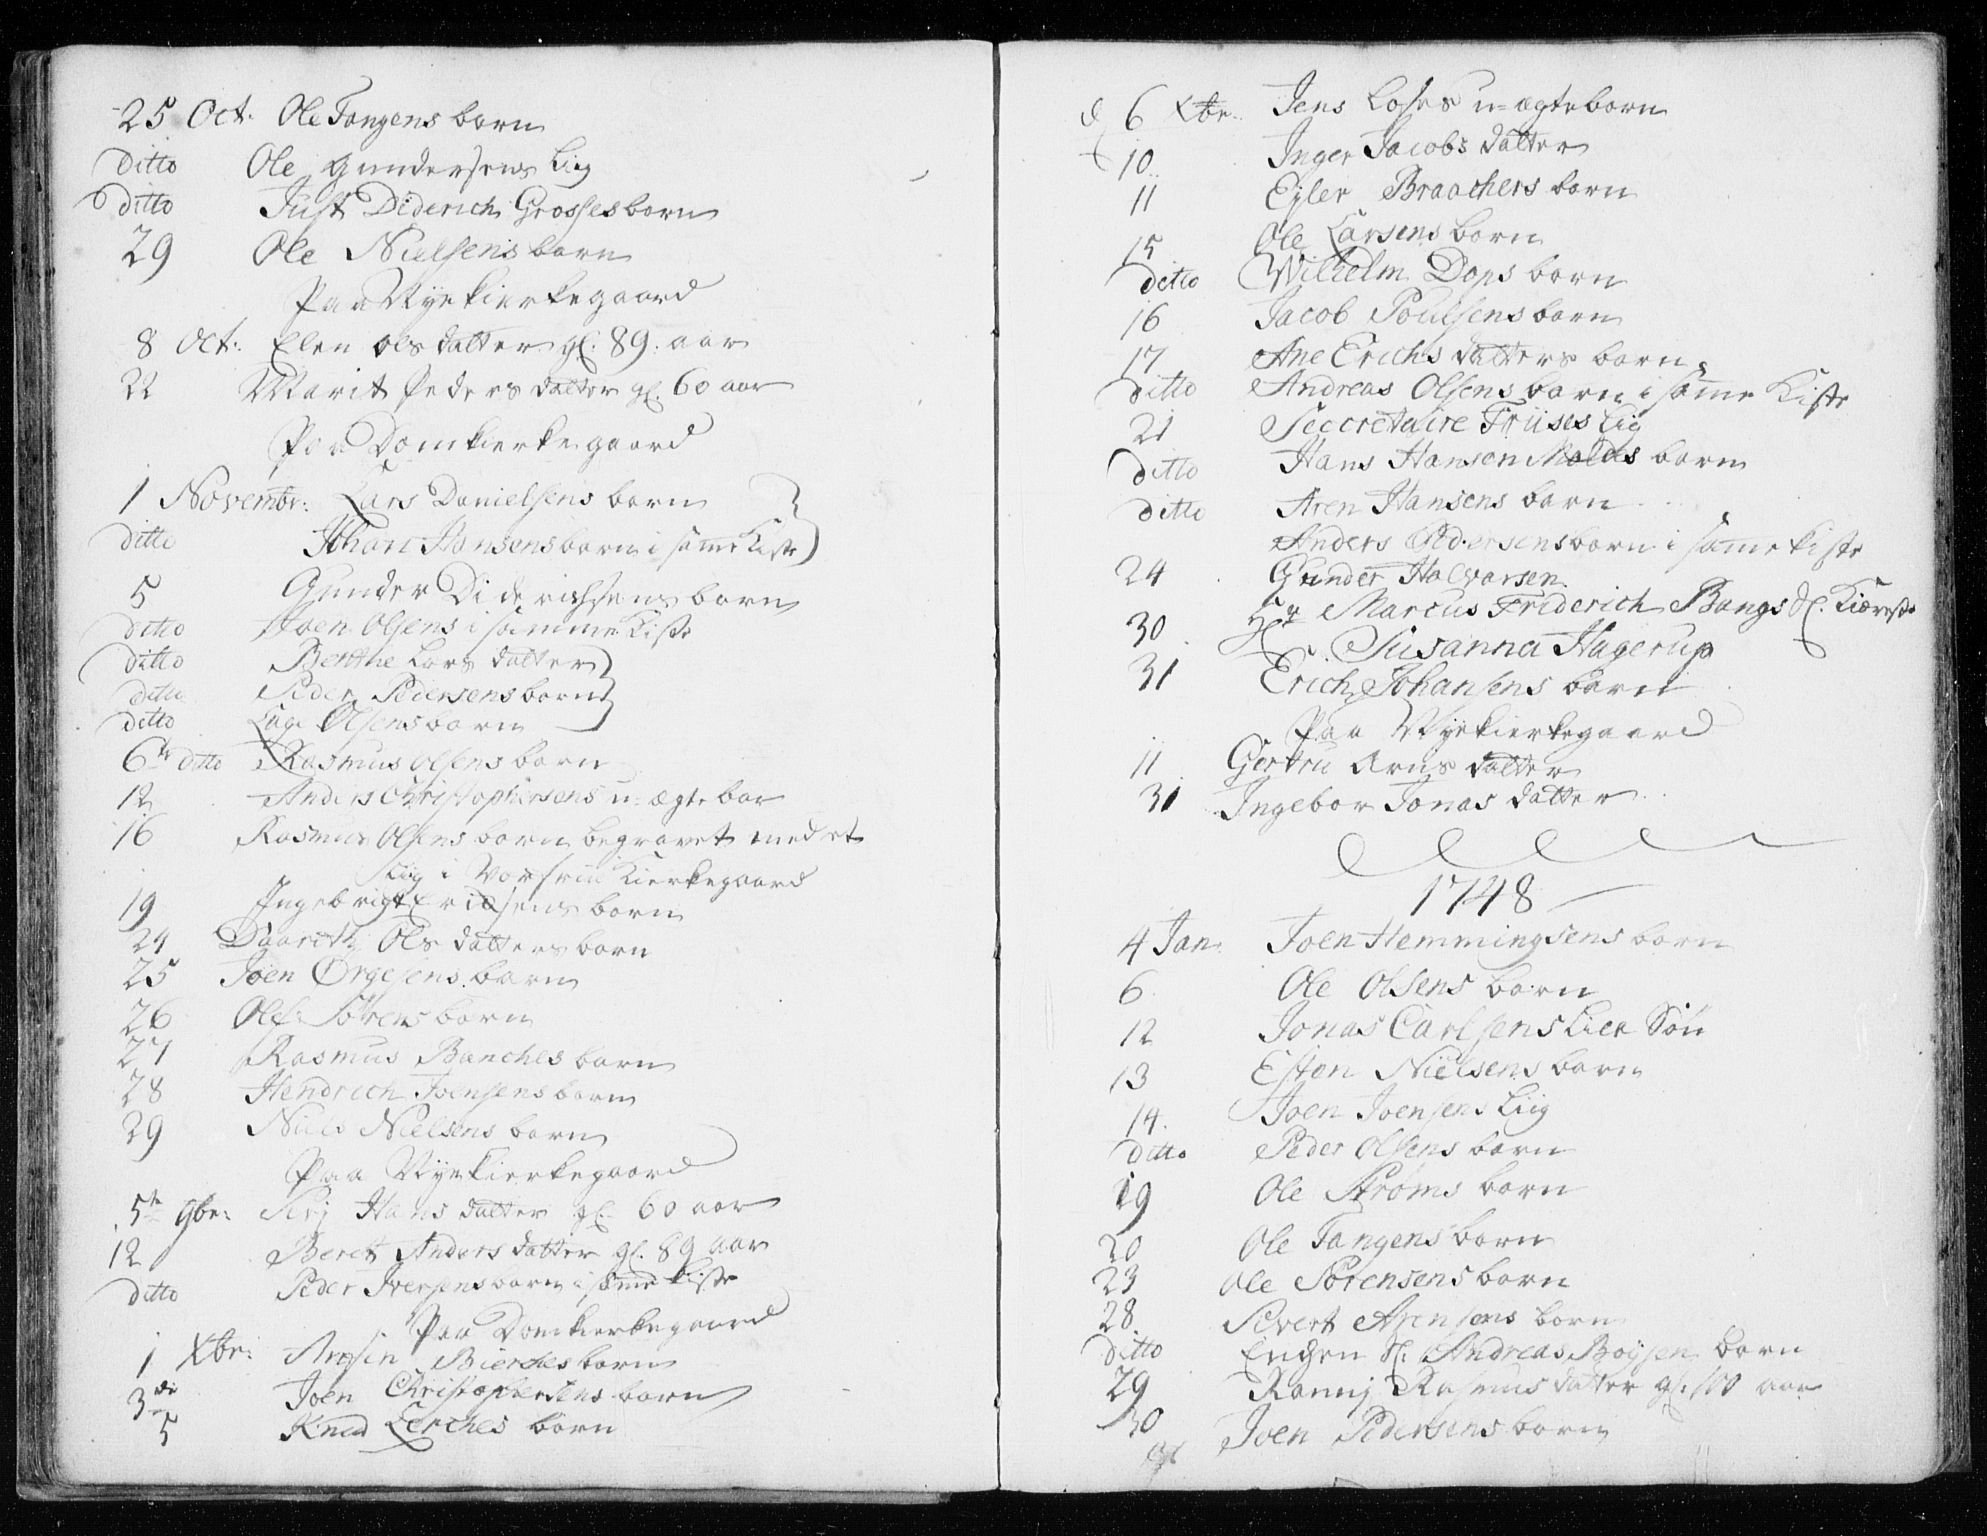 25 Oct. Ole Tangens barn
ditto Ole Gundersens Lig
ditto Just Diderich Grosses barn
29 Ole Nielsens barn
Paa Nyekierkegaard
8 Oct. Elen Ols datter gl. 89 aar
22 Marit Peders datter gl. 60 aar
Paa Domkierkegaard
1 Novembr: Lars Danielsens barn
ditto Johan Hansens barn i samme Kiste
5 Gunder Diderichsens barn
ditto Joen Olsens i samme Kiste
ditto Berthe Lars datter
ditto Peder Pedersens barn
ditto Olsens barn
6te ditto Rasmus Olsens barn
12 Anders Christophersens u-ægte bar
16 Rasmus Olsens barn begravet med et
Liig i Vorfrue Kierkegaard
19 Ingebrigt Ericsens barn
24 Ols datters barn
25 Joen Ørgesens barn
26 Ole Sørens barn
27 Rasmus Banches barn
28 Hendrich Joensens barn
29 Niels Nielsens barn
Paa Nyekierkegaard
5te 9br: Siri Hans datter gl. 60 aar
12 Beret Anders datter gl. 89 aar
ditto Peder Iversens barn i samme kiste
Paa Domkierkegaard
1 Xbr: Bierches barn
3die Joen Christophersens barn
5 Knud Lerches barn
d 6 Xbr. Jens Loses u-ægte barn
10 Inger Jacobs datter
11 Ejler Braachers barn
15 Ole Larsens barn
ditto Wilhelm Dops barn
16 Jacob Poulsens barn
17 Ane Erichs datters barn
ditto Andreas Olsens barn i samme Kiste
21 Secretaire Friises Lig
ditto Hans Hansen Molds barn
ditto Aren Hansens barn
Anders Pedersens barn i samme kiste
24 Gunder Halvorsen
30 Hr Marcus Friderich Bangs Sl. Kiæreste
Susanna Hagerup
31 Erich Johansens barn
Paa Nyekierkegaard
11 Gertru Arns datter
31 Ingebor Jonas datter
1748
4 Jan. Joen Hemmingsens barn
6 Ole Olsens barn
12 Jonas Carlsens Lien Søn
13 Esten Nielsens barn
14. Joen Joensens Liig
ditto Peder Olsens barn
19 Ole Strøms barn
20 Ole Tangens barn
23 Ole Sørensens barn
28 Sivert Arensens barn
ditto Enchen Sl. Andreas Boysen barn
29 Rannj Rasmus datter gl. 100 aar
30 Joen Pedersens barn